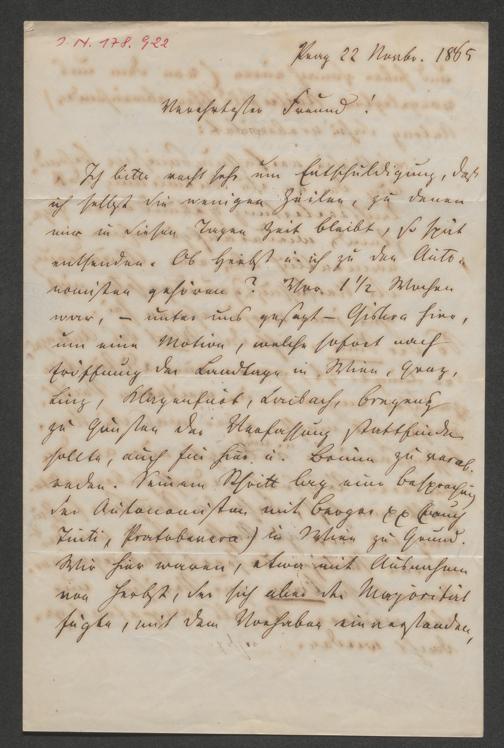 I. N. 178.922
Prag 22 Novbr. 1865
Verehrtester Freund!
Ich bitte recht sehr um Entschuldigung, daß
ich selbst die wenigen Zeilen, zu denen
mir in diesen Tagen Zeit bleibt, so spät
entsende. Ob Herbst u. ich zu den Auto-
nomisten gehören? Vor 1 1/2 Wochen
war, – unter uns gesagt – Giskra hier,
um eine Motion, welche sofort nach
Eröffnung der Landtage in Wien, Graz,
Linz, Klagenfurt, Laibach, Bregenz
zu Gunsten der Verfassung stattfinden
sollte, auch für hier u. Brünn zu verab-
reden. Seinem Schritt lag eine Besprechung
der Autonomisten mit Berger (auch
Tinti, Pratobevera) in Wien zu Grund.
Wir hier waren, etwa mit Ausnahme
von Herbst, der sich aber der Majorität
fügte, mit dem Vorhaben einverstanden,